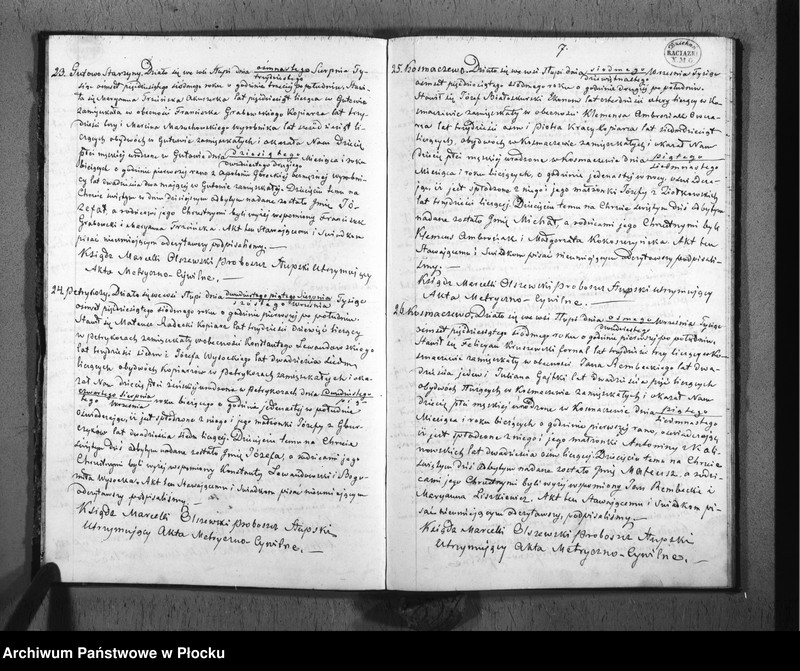 23. Gutowo Starzyny. Działo się we wsi Słupi dnia ośmnastego Sierpnia Ty-
trzydziestego
siąc ośmset pięćdziesiątego siódmego roku o godzinie trzeciej po południu. Stawi-
ła się Maryanna lat pięćdziesiąt licząca w Gutowie
zamieszkała w obecności Franciszka Grabowskiego Kopiarza lat trzy-
dzieści trzy i Marcina Wyrobnika lat
czących obydwóch w Gutowie zamieszkałych i okazała Nam Dziecię
płci męskiej urodzone w Gutowie dnia dziesiątego Miesiąca i roku
dwudziestego drugiego
bieżących o godzinie pierwszej rano z Apolonii wyrobni-
cy lat dwadzieścia dwa mającej w Gutowie zamieszkałej. Dziecięciu temu na
Chrzcie świętym w dniu dzisiejszym odbytym nadane zostało Imię Jó-
zefat, a rodzicami jego Chrzestnymi byli wyżej wspomniony Franciszek
Grabowski i Maryanna Akt ten Stawającemu i Świadkom
pisać nieumiejącym odczytawszy podpisaliśmy. —
Ksiądz Marcelli Olszewski Proboszcz Słupski Utrzymujący
Akta Metryczno-Cywilne. —
24. Petrykozy. Działo się we wsi Słupi dnia dwudziestego piątego Sierpnia Tysiąc
szóstego Września
ośmset pięćdziesiątego siódmego roku o godzinie pierwszej po południu.
Stawił się Mateusz Radecki Kopiarz lat trzydzieści dziewięć liczący
w Petrykozach zamieszkały w obecności Konstantego Lewandowskiego
lat trzydzieści siedem i Józefa Wysockiego lat dwadzieścia siedm
liczących obydwóch Kopiarzów w Petrykozach zamieszkałych i oka-
zał Nam Dziecię płci żeńskiej urodzone w Petrykozach dnia dwudziestego
czwartego Sierpnia
Września roku bieżącego o godzinie jedenastej w południe
oświadczając, iż jest spłodzone z niego i jego małżonki Józefy z
lat dwadzieścia liczącej. Dziecięciu temu na Chrzcie
świętym dziś odbytym nadane zostało Imię Józefa, a rodzicami jego
Chrzestnymi byli wyżej wspomniony Konstanty Lewandowski i Bogu-
miła Wysocka. Akt ten Stawającemu i Świadkom pisać nieumiejącym
odczytawszy podpisaliśmy. —
Ksiądz Marcelli Olszewski Proboszcz Słupski
Utrzymujący Akta Metryczno-Cywilne. —
7.
RACIĄŻSKI
25. Kosmaczewo. Działo się we wsi Słupi dnia siodmego Września Tysiąc
dziewiętnastego
ośmset pięćdziesiątego siódmego roku o godzinie drugiej po południu.
Stawił się Józef Białoszewski Ekonom lat czterdzieści cztery liczący w Ko-
smaczewie zamieszkały w obecności Klemensa Ambroziak
lat trzydzieści ośm i Piotra Kopiarza lat siedmdziesiąt
liczących, obydwóch w Kosmaczewie zamieszkałych; i okazał Nam
Dziecię płci męskiej urodzone w Kosmaczewie dnia piątego
siedmnastego
Miesiąca i roku bieżących, o godzinie jedenastej w nocy, oświadcza-
jąc, iż jest spłodzone z niego i jego małżonki Józefy z Ziółkowskich
lat trzydzieści liczącej. Dziecięciu temu na Chrzcie świętym dziś odbytym
nadane zostało Imię Michał, a rodzicami jego Chrzestnymi byli
Klemens Ambroziak i Małgorzata Kokoszczyńska. Akt ten
Stawającemu i Świadkom pisać nieumiejącym odczytawszy podpisali-
śmy. —
Ksiądz Marcelli Olszewski Proboszcz Słupski utrzymujący
Akta Metryczno-Cywilne. —
26. Kosmaczewo. Działo się we wsi Słupi dnia osmego Września Tysiąc
dwudziestego
ośmset pięćdziesiątego siódmego roku o godzinie pierwszej po południu,
Stawił się Felicyan Kruszewski fornal lat trzydzieści trzy liczący w Ko-
smaczewie zamieszkały w obecności Jana Rembeckiego lat dwa-
dzieścia jeden i Juliana Gajtki lat dwadzieścia pięć liczących
obydwóch służących w Kosmaczewie zamieszkałych; i okazał Nam
Dziecię płci męskiej urodzone w Kosmaczewie dnia piątego
siedmnastego
Miesiąca i roku bieżących o godzinie pierwszej rano, oświadczając,
iż jest spłodzone z niego i jego małżonki Antoniny z Kali-
nowskich lat dwadzieścia ośm liczącej. Dziecięciu temu na Chrzcie
świętym dziś odbytym nadane zostało Imię Mateusz, a rodzi-
cami jego Chrzestnymi byli wyżej wspomniony Jan Rembecki i
Maryanna Liszkiewicz. Akt ten Stawającemu i Świadkom pi-
sać nieumiejącym odczytawszy, podpisaliśmy. —
Ksiądz Marcelli Olszewski Proboszcz Słupski
Utrzymujący Akta Metryczno-Cywilne. —
Archiwum Państwowe w Płocku